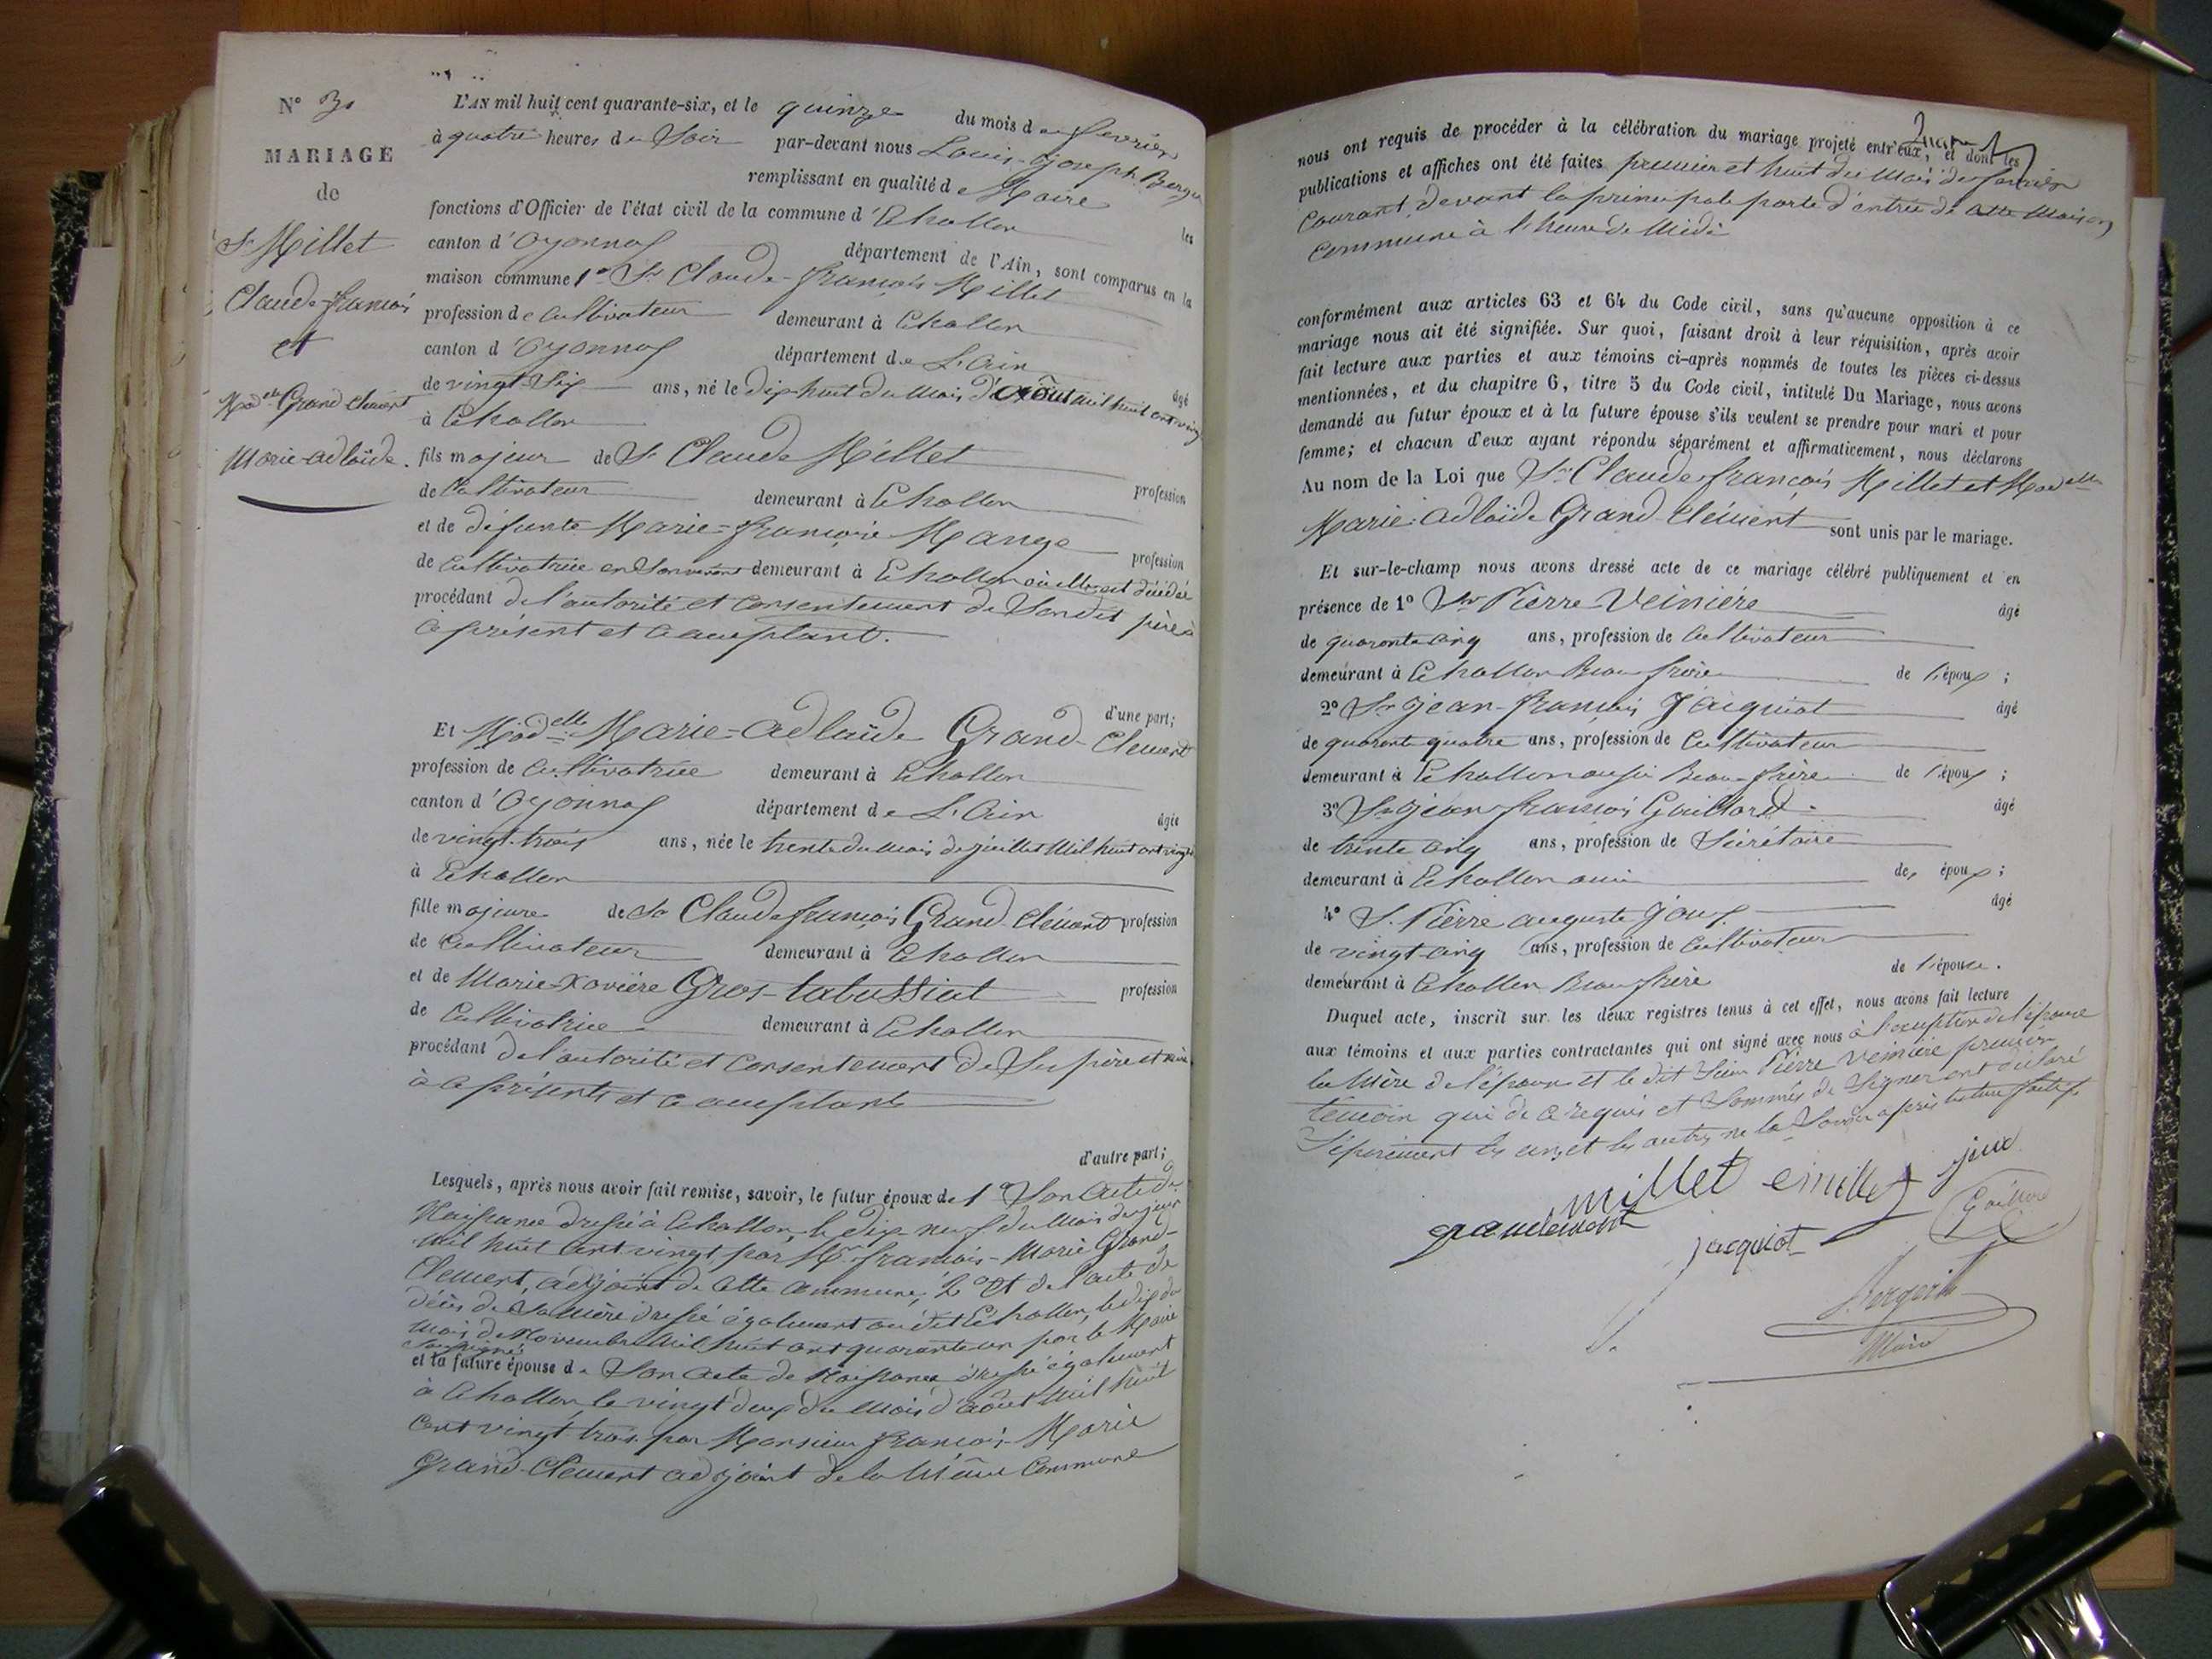 N° 3
MARIAGE
de
Sr Millet
Claude-françois
et
Modelle Grand Clément
Marie-adlaïde.
L'AN mil huit cent quarante-six, et le quinze du mois de fevrier
à quatre heures du Soir par-devant nous Louis-Joseph Berger
remplissant en qualité de Maire les
fonctions d'Officier de l'état civil de la commune d'Echallon
canton d'Oyonnax département de l'Ain, sont comparus en la
maison commune 1° Sr Claude-françois Millet
profession de Cultivateur demeurant à Echallon
canton d'Oyonnax département de L'Ain âgé
de vingt-Six ans, né le dix-huit du mois d'août mil huit cent vingt
à Echallon
fils majeur de Sr Claude Millet profession
de Cultivateur demeurant à Echallon
et de défunte Marie-françoise Mange profession
de Cultivatrice en Son vivant demeurant à Echallon où elle est décédée
procédant de l'autorité et consentement de Sondit père à
ce présent et acceptant.
d'une part;
Et Modelle Marie-adlaïde Grand-Clement
profession de Cultivatrice demeurant à Echallon
canton d'Oyonnax département de L'Ain âgée
de vingt-trois ans, née le trente du mois de juillet mil huit cent vingt
à Echallon
fille majeure de Sr Claude françois Grand-Clément profession
de Cultivateur demeurant à Echallon
et de Marie-Xavière Gros-tabussiat profession
de Cultivatrice demeurant à Echallon
procédant de l'autorité et consentement de Ses père et mère
à ce présents et acceptants
d'autre part;
Lesquels, après nous avoir fait remise, savoir, le futur époux de 1° Son acte de
Naissance dressé à Echallon, le dix-neuf du mois
mil huit cent vingt, par Mr françois-Marie Grand-
Clement, adjoint de cette commune; 2° Et de l'acte de
décès de Sa mère dressé également audit Echallon, le dix du
mois de Novembre mil huit cent quarante un par le Maire
Soussigné
et la future épouse de Son acte de Naissance dressé également
à Echallon, le vingt deux du mois d'août mil huit
cent vingt trois par Monsieur françois Marie
Grand-Clement adjoint de la même Commune
nous ont requis de procéder à la célébration du mariage projeté entr'eux, et dont les
publications et affiches ont été faites premier et huit du mois de fevrier
courant, devant la principale porte d'entrée de cette maison
commune à l'heure de Midi
conformément aux articles 63 et 64 du Code civil, sans qu'aucune opposition à ce
mariage nous ait été signifiée. Sur quoi, faisant droit à leur réquisition, après avoir
fait lecture aux parties et aux témoins ci-après nommés de toutes les pièces ci-dessus
mentionnées, et du chapitre 6, titre 5 du Code civil, intitulé Du Mariage, nous avons
demandé au futur époux et à la future épouse s'ils veulent se prendre pour mari et pour
femme; et chacun d'eux ayant répondu séparément et affirmativement, nous déclarons
Au nom de la Loi que Sr Claude françois Millet et Modelle
Marie-adlaïde Grand-Clément sont unis par le mariage.
Et sur-le-champ nous avons dressé acte de ce mariage célébré publiquement et en
présence de 1° Sr Pierre Veinière âgé
de quarante cinq ans, profession de Cultivateur
demeurant à Echallon Beau frère de l'époux;
2° Sr Jean-françois Jacquiot âgé
de quarante quatre ans, profession de Cultivateur
demeurant à Echallon aussi Beau-frère de l'époux;
3° Sr Jean françois Gaillard âgé
de trente cinq ans, profession de Sécrétaire
demeurant à Echallon ami des époux;
4° Sr Pierre auguste Joux âgé
de vingt-cinq ans, profession de Cultivateur
demeurant à Echallon Beau frère de l'épouse.
Duquel acte, inscrit sur les deux registres tenus à cet effet, nous avons fait lecture
aux témoins et aux parties contractantes qui ont signé avec nous à l'exception de l'épouse
la Mère de l'épouse et le dit Sieur Pierre Veinière premier
témoin qui de ce requis et Sommés de Signer ont déclaré
Séparément les uns et les autres ne le Savoir après lecture faite
millet cmillet joux
grandclement jacquiot Gaillard
Maire